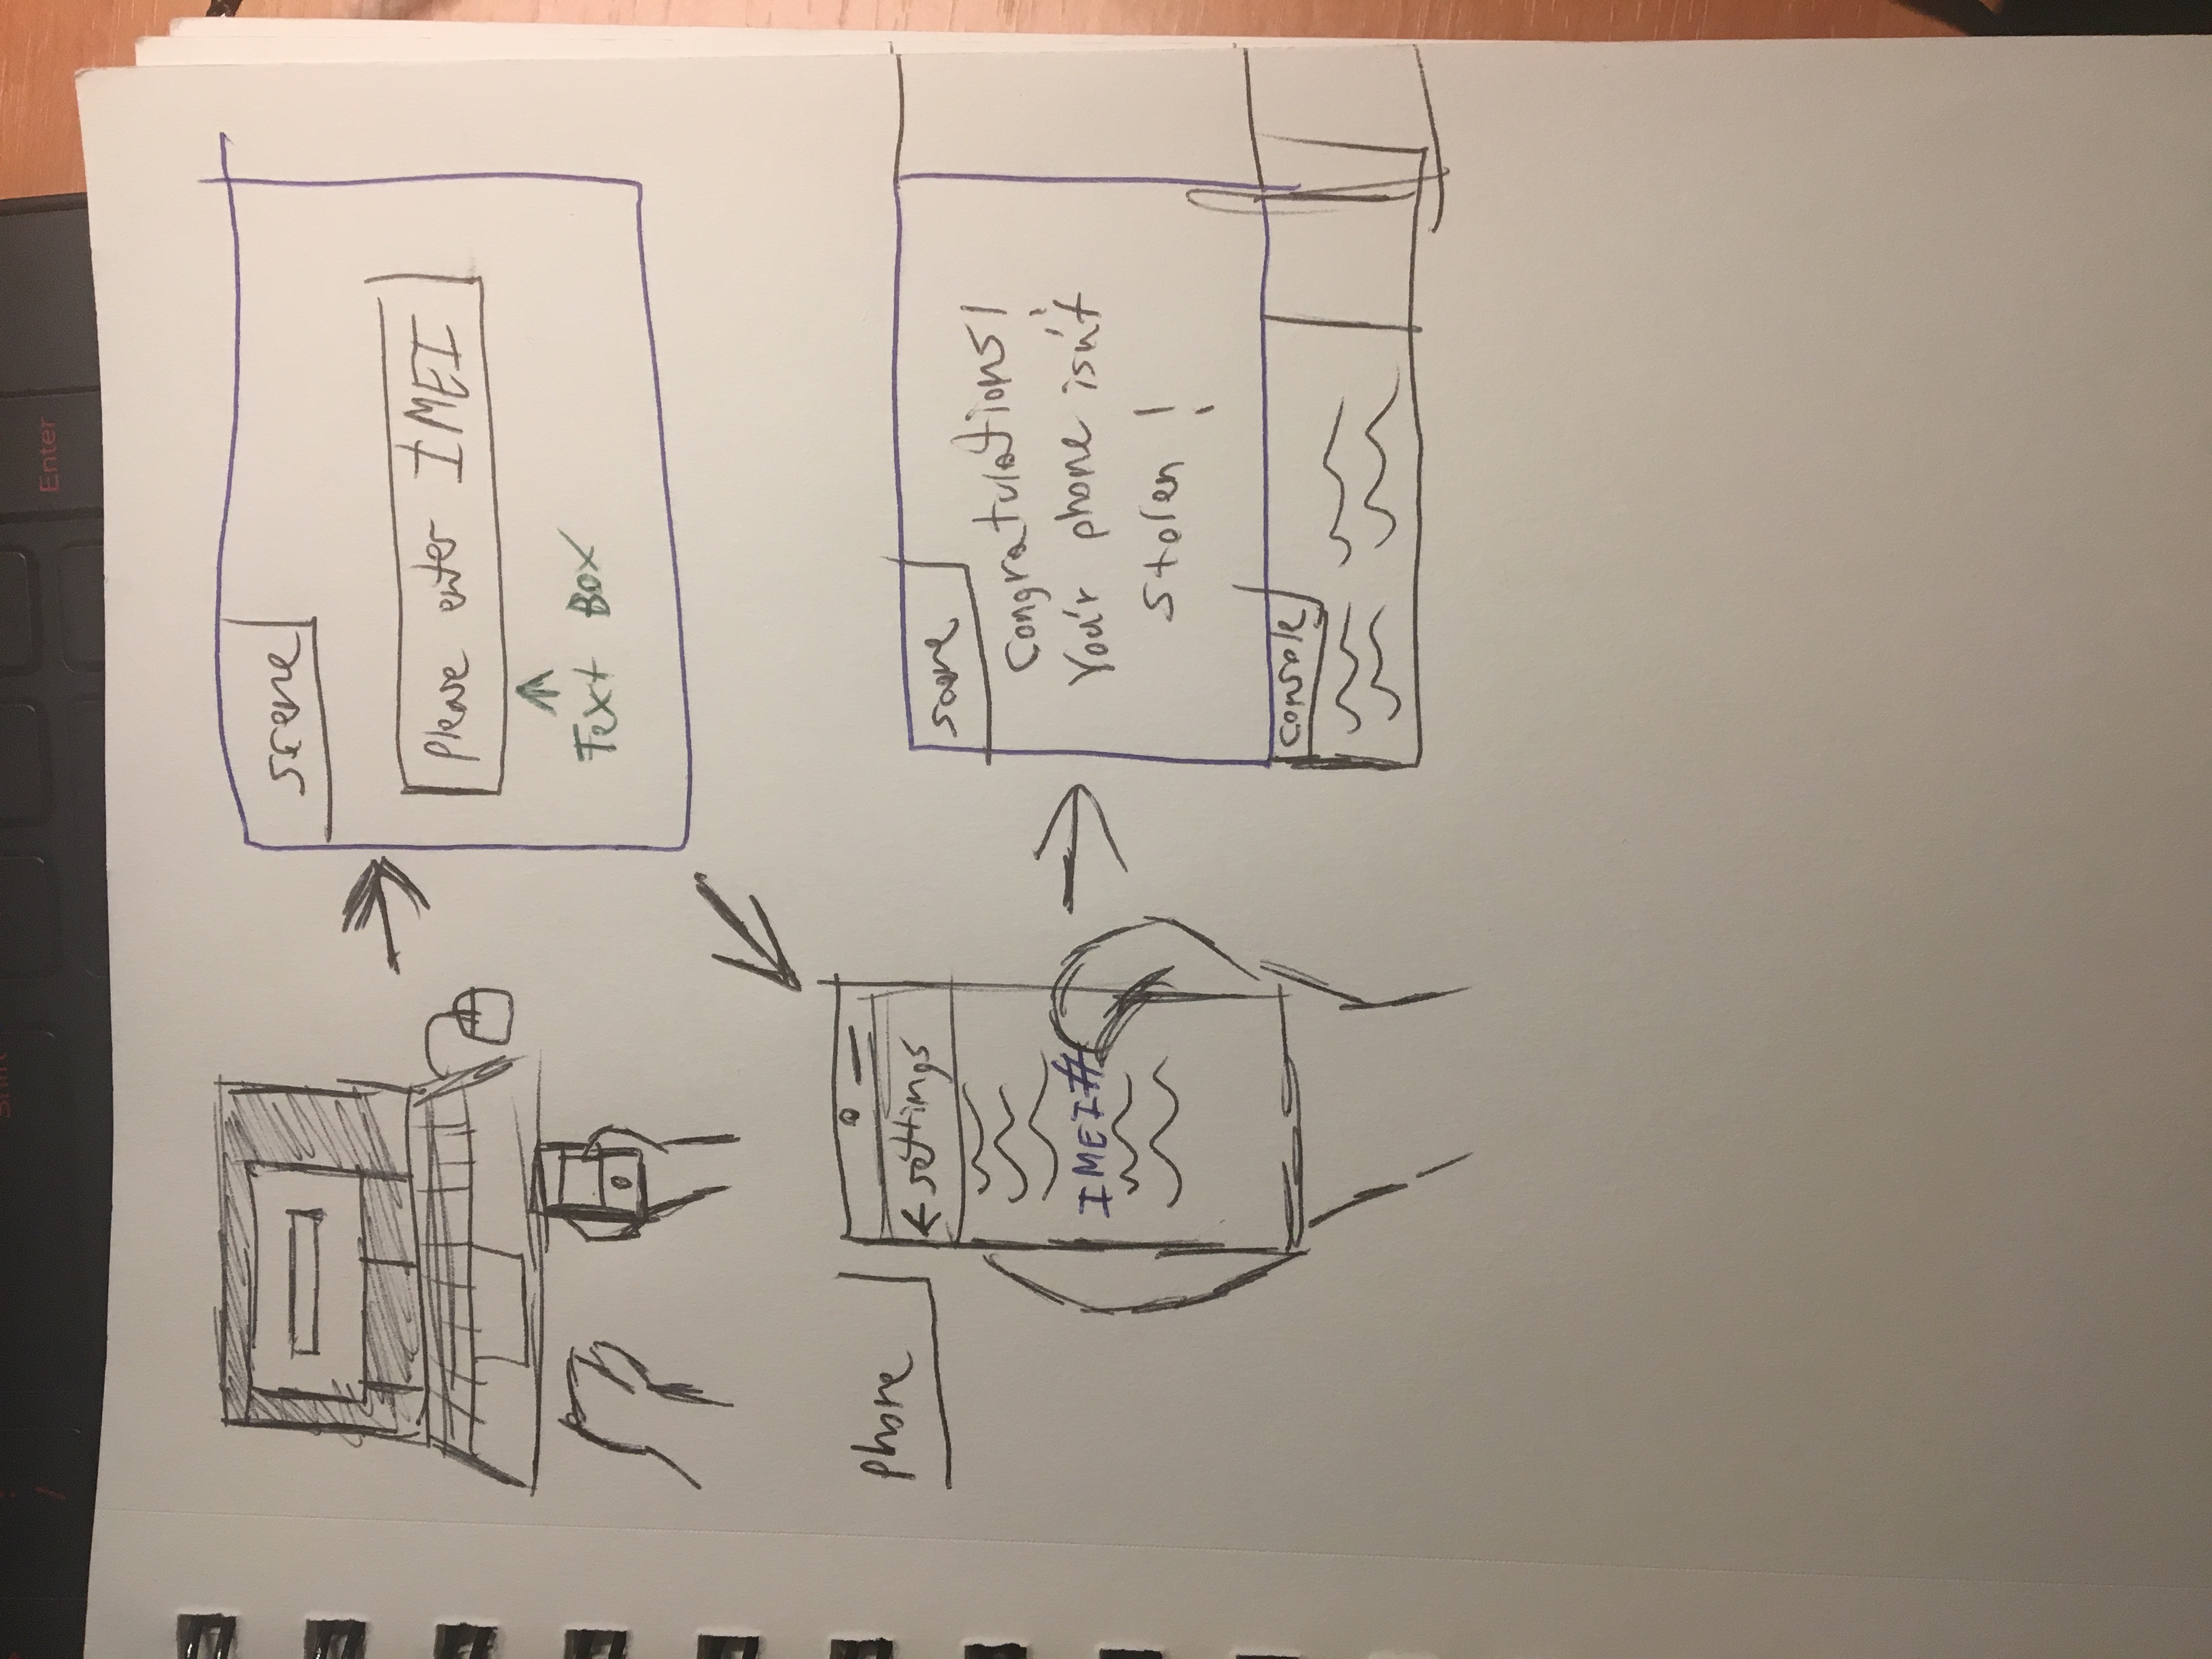 Shift
Enter
scene
Please enter IMEI
Text Box
phone
← settings
IMEI#
scene
Congratulations!
You'r phone isn't
stolen !
console